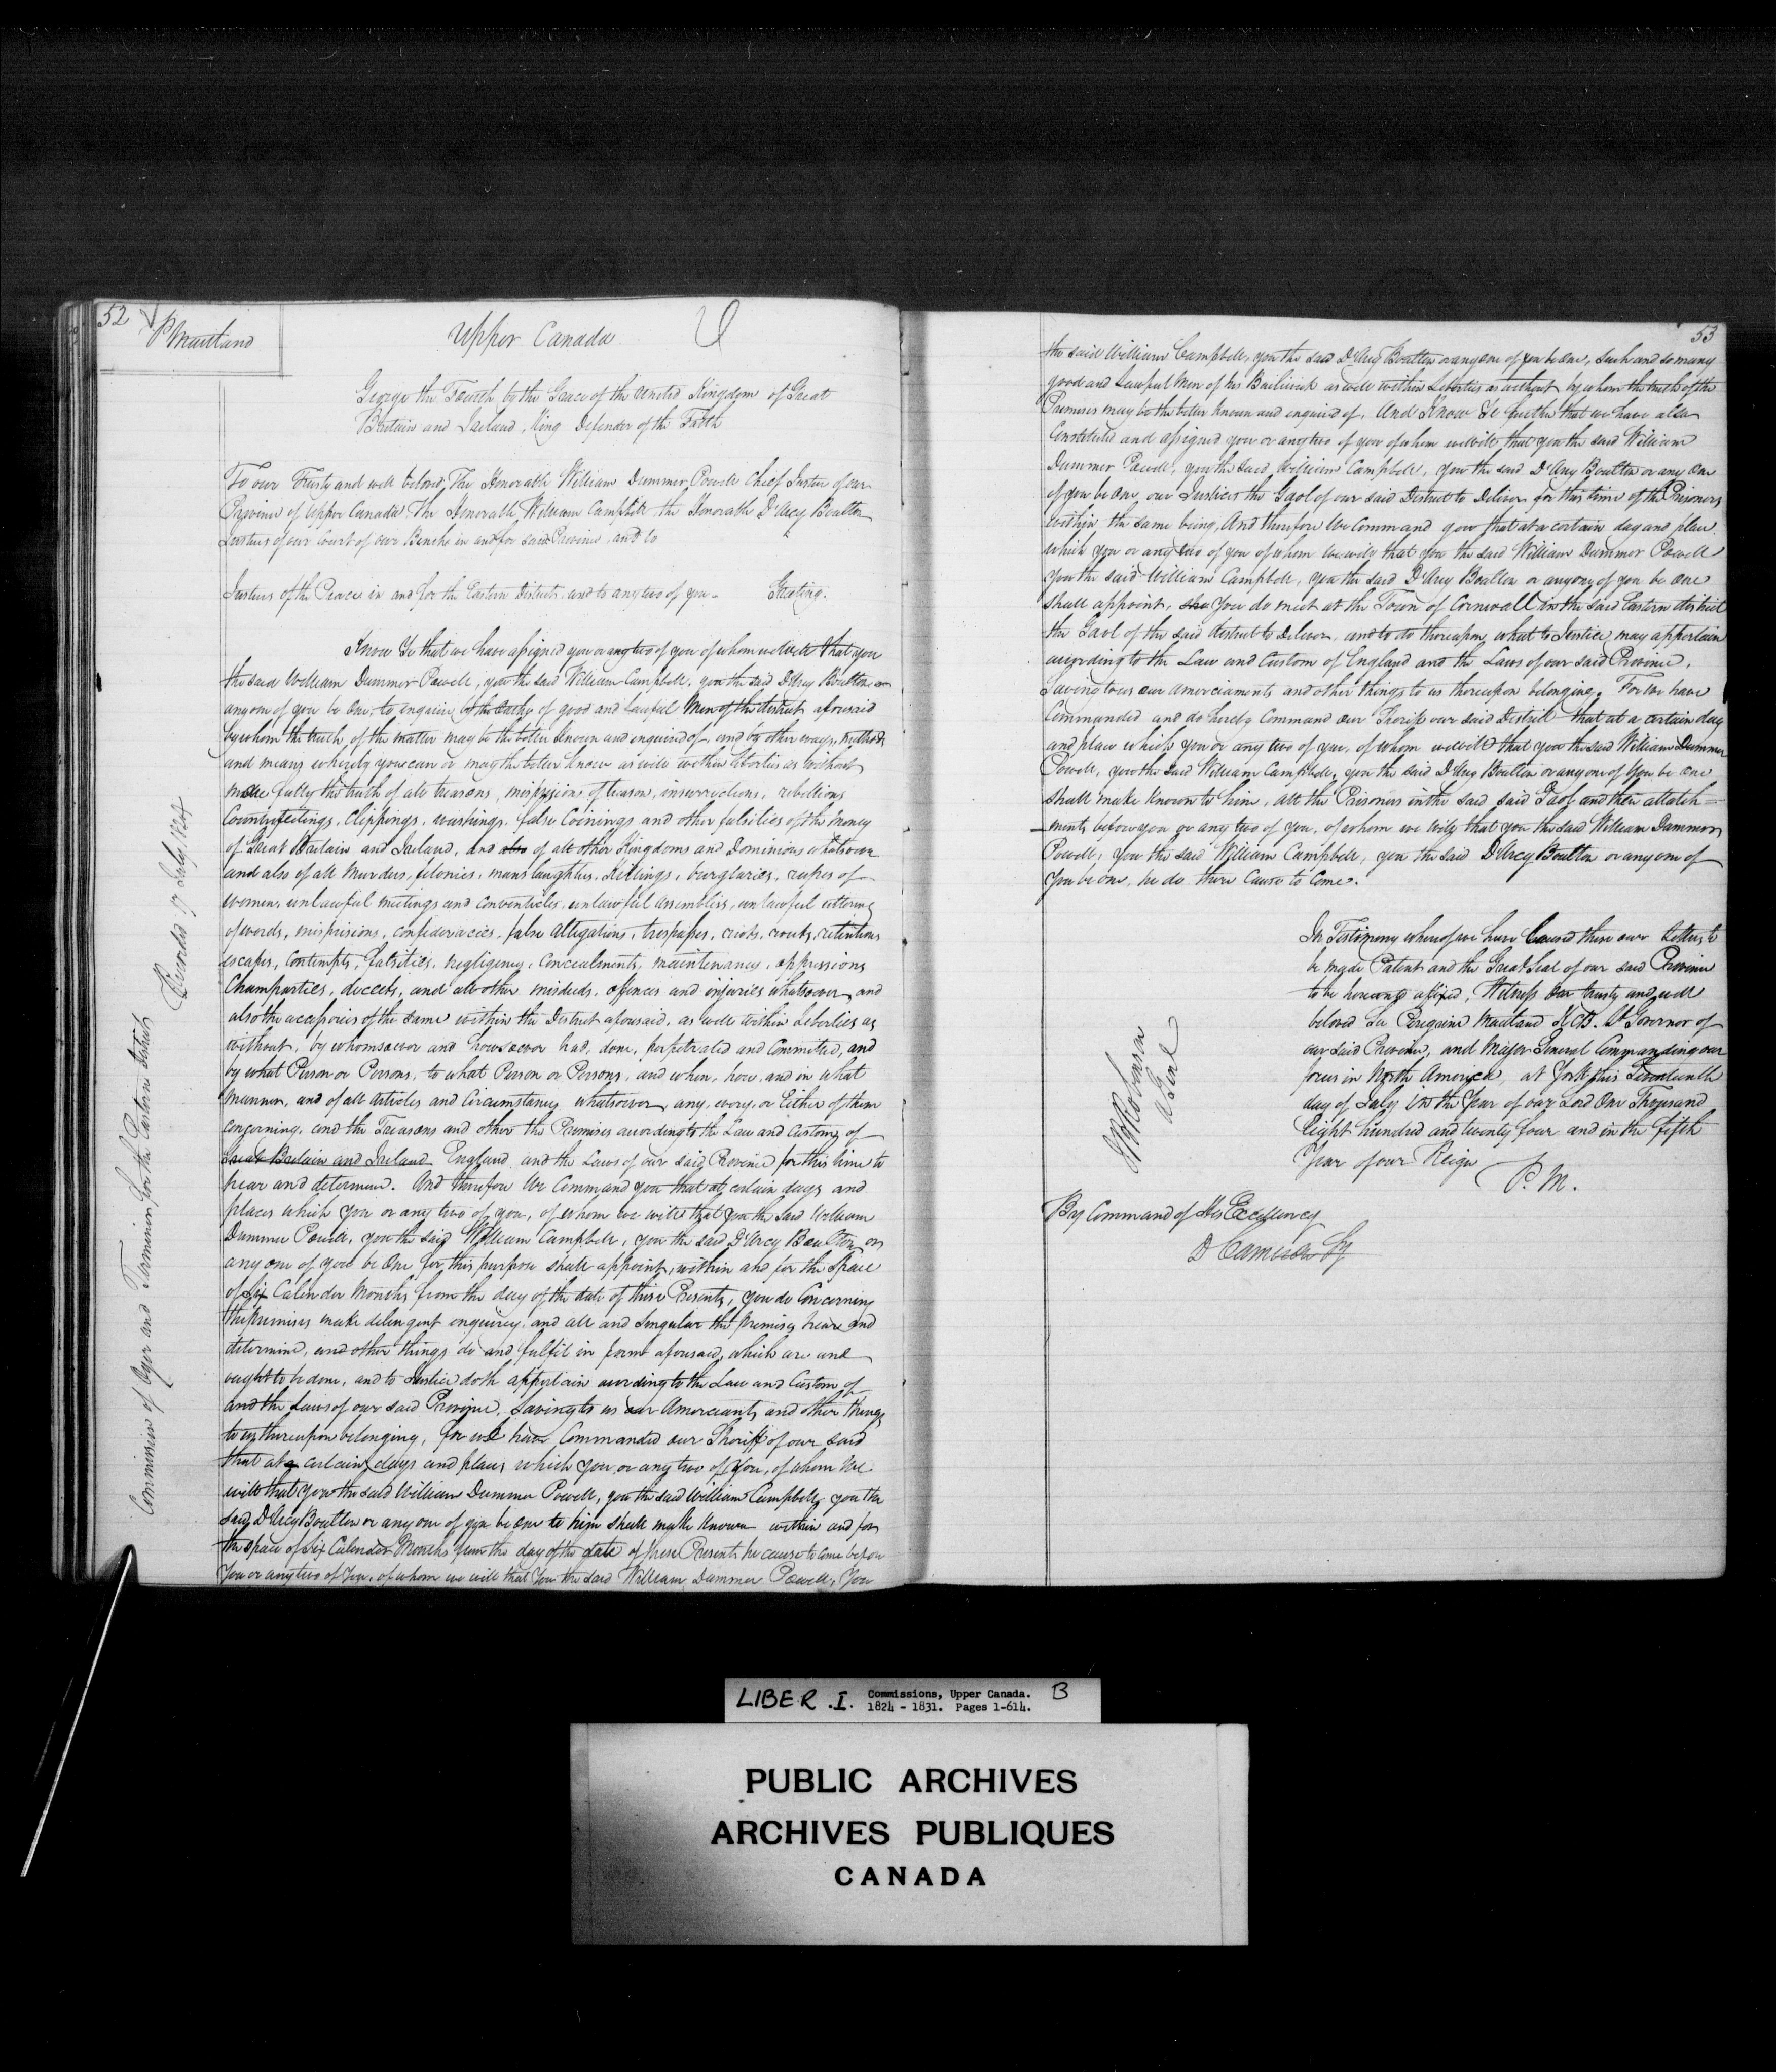 52
P Maitland
Upper Canada
George the Fourth by the Grace of the United Kingdom of Great
Britain and Ireland, King Defender of the Faith
To our Trusty and well beloved, The Honorable William Dummer Powell Chief Justice of our
Province of Upper Canada The Honorable William Campbell the Honorable D'Arcy Boulton
Justices of our Court of our Bench in and for said Province, and to
Justices of the Peace in and for the Eastern District, and to any two of you - Greeting.
Know Ye that we have assigned you or any two of you of whom we will that you
the said William Dummer Powell, you the said William Campbell, you the said D'Arcy Boulton or
any one of you be One, to enquire by the Oaths of good and Lawful Men of the district aforesaid
by whom the truth of the matter may be the better known and enquired of, and by other ways, methods
and means whereby you can or may the better know as well within liberties as without
more fully the truth of all treasons, misprisions of treason, insurrections, rebellions
Counterfeitings, Clippings, washings, false Coinings and other falsities of the Money
of Great Britain and Ireland, and also of all other Kingdoms and Dominions whatsoever
and also of all Murders, felonies, manslaughters, Killings, burglaries, rapes of
women, unlawful meetings and conventicles, unlawful assemblies, unlawful uttering
of words, misprisions, confederacies, false allegations, trespasses, riots, routs, retentions
escapes, Contempts, falsities, negligence, Concealments, maintenance, oppressions
Champarties, deceits, and all other misdeeds, offences and injuries whatsoever, and
also the accessories of the same within the District aforesaid, as well within Liberties as
without, by whomsoever and howsoever had, done, perpetrated and Committed, and
by what Person or Persons, to what Person or Persons, and when, how, and in what
manner, and of all Articles and Circumstances whatsoever, any, every, or Either of them
concerning, and the Treasons and other the Premises according to the Law and Customs of
Great Britain and Ireland England and the Laws of our said Province for this time to
hear and determine. And therefore We Command you that at certain days and
places which You or any two of you, of whom we will that you the said William
Dummer Powell, you the said William Campbell, you the said D'Arcy Boulton or
any one of you be One for this purpose shall appoint, within and for the Space
of Six Calender Months from the day of the date of these Presents, you do Concerning
the premises make delengent enquirey, and all and Singular the premises hear and
determine, and other things do and fulfil in form aforesaid, which are and
ought to be done, and to Justice doth appertain according to the Law and Custom of
and the Laws of our said Province, Saving to us our Amerciaments and other things
to us thereupon belonging, for we have Commanded our Sheriff of our said
that at a certain days and places which you or any two of you, of whom We
will that you the said William Dummer Powell, you the said William Campbell, you the
said D'Arcy Boulton or any one of you be One to him shall make known within and for
the space of Six Calendar Months from the day of the date of these Presents he cause to Come before
You or any two of You, of whom we will that You the said William Dummer Powell, You
Commission of Oyer and Terminer, for the Eastern district
Recorded 17 July 1824
53
the said William Campbell, you the said D'Arcy Boulton or any one of you be One, such and so many
good and Lawful Men of his Bailiwick as well within Liberties as without by whom the truth of the
Premises may be the better known and enquired of. And Know Ye further that we have also
Constituted and assigned you or any two of you of whom we will that you the said William
Dummer Powell, you the said William Campbell, you the said D'Arcy Boulton or any One
of you be One, our Justices the Gaol of our said District to Deliver for this time of the Prisoners
within the same being, And therefore We Command you that at a certain day and place
which you or any two of you of whom we will that you the said William Dummer Powell
you the said William Campbell, you the said D'Arcy Boulton or any one of you be One
shall appoint, you do meet at the Town of Cornwall in the said Eastern district
the Gaol of the said district to deliver, and to do thereupon, what to Justice may appertain
according to the Law and Custom of England and the Laws of our said Province.
Saving to us our amerciaments and other things to us thereupon belonging. For We have
Commanded and do hereby Command our Sheriff our said District that at a certain day
and place which you or any two of you, of whom we will that you the said William Dummer
Powell, you the said William Campbell, you the said D'Arcy Boulton or any one of You be One
shall make known to him, all the Prisoners in the said said Gaol and their attatch=
ments before you or any two of you, of whom we will that you the said William Dummer
Powell, you the said William Campbell, you the said D'Arcy Boulton or any one of
you be one, he do there Cause to Come.
In Testimony whereof we have Caused these our Letters to
be made Patent and the Great Seal of our said Province
to be hereunto affixed, Witness Our trusty and well
beloved Sir Peregrine Maitland K.C.B. Lt Governor of
our said Province, and Major General Commanding our
forces in North America, at York this Seventeenth
day of July in the Year of our Lord One Thousand
Eight hundred and twenty four and in the fifth
Year of our Reign
P. M.
By Command of His Excellency
D Cameron Sy
A Genl
LIBER .I. Commissions, Upper Canada. B
1824 - 1831. Pages 1-614.
PUBLIC ARCHIVES
ARCHIVES PUBLIQUES
CANADA